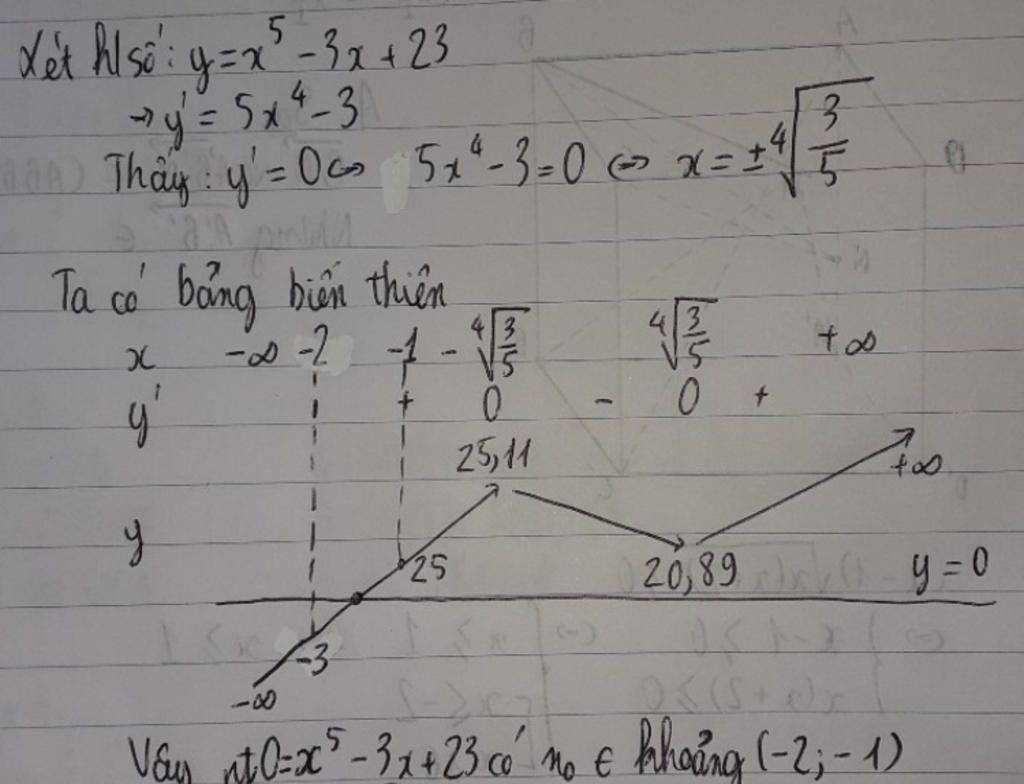 Xét h/số: y = x⁵ - 3x + 23
→ y' = 5x⁴ - 3
Thấy: y' = 0 ⇔ 5x⁴ - 3 = 0 ⇔ x = ±⁴√(3/5)
Ta có bảng biến thiên
x -∞ -2 -1 -⁴√(3/5) ⁴√(3/5) +∞
y' + 0 - 0 +
25,11
+∞
y 25 20,89 y = 0
-3
-∞
Vậy pt 0 = x⁵ - 3x + 23 có n₀ ∈ khoảng (-2; -1)